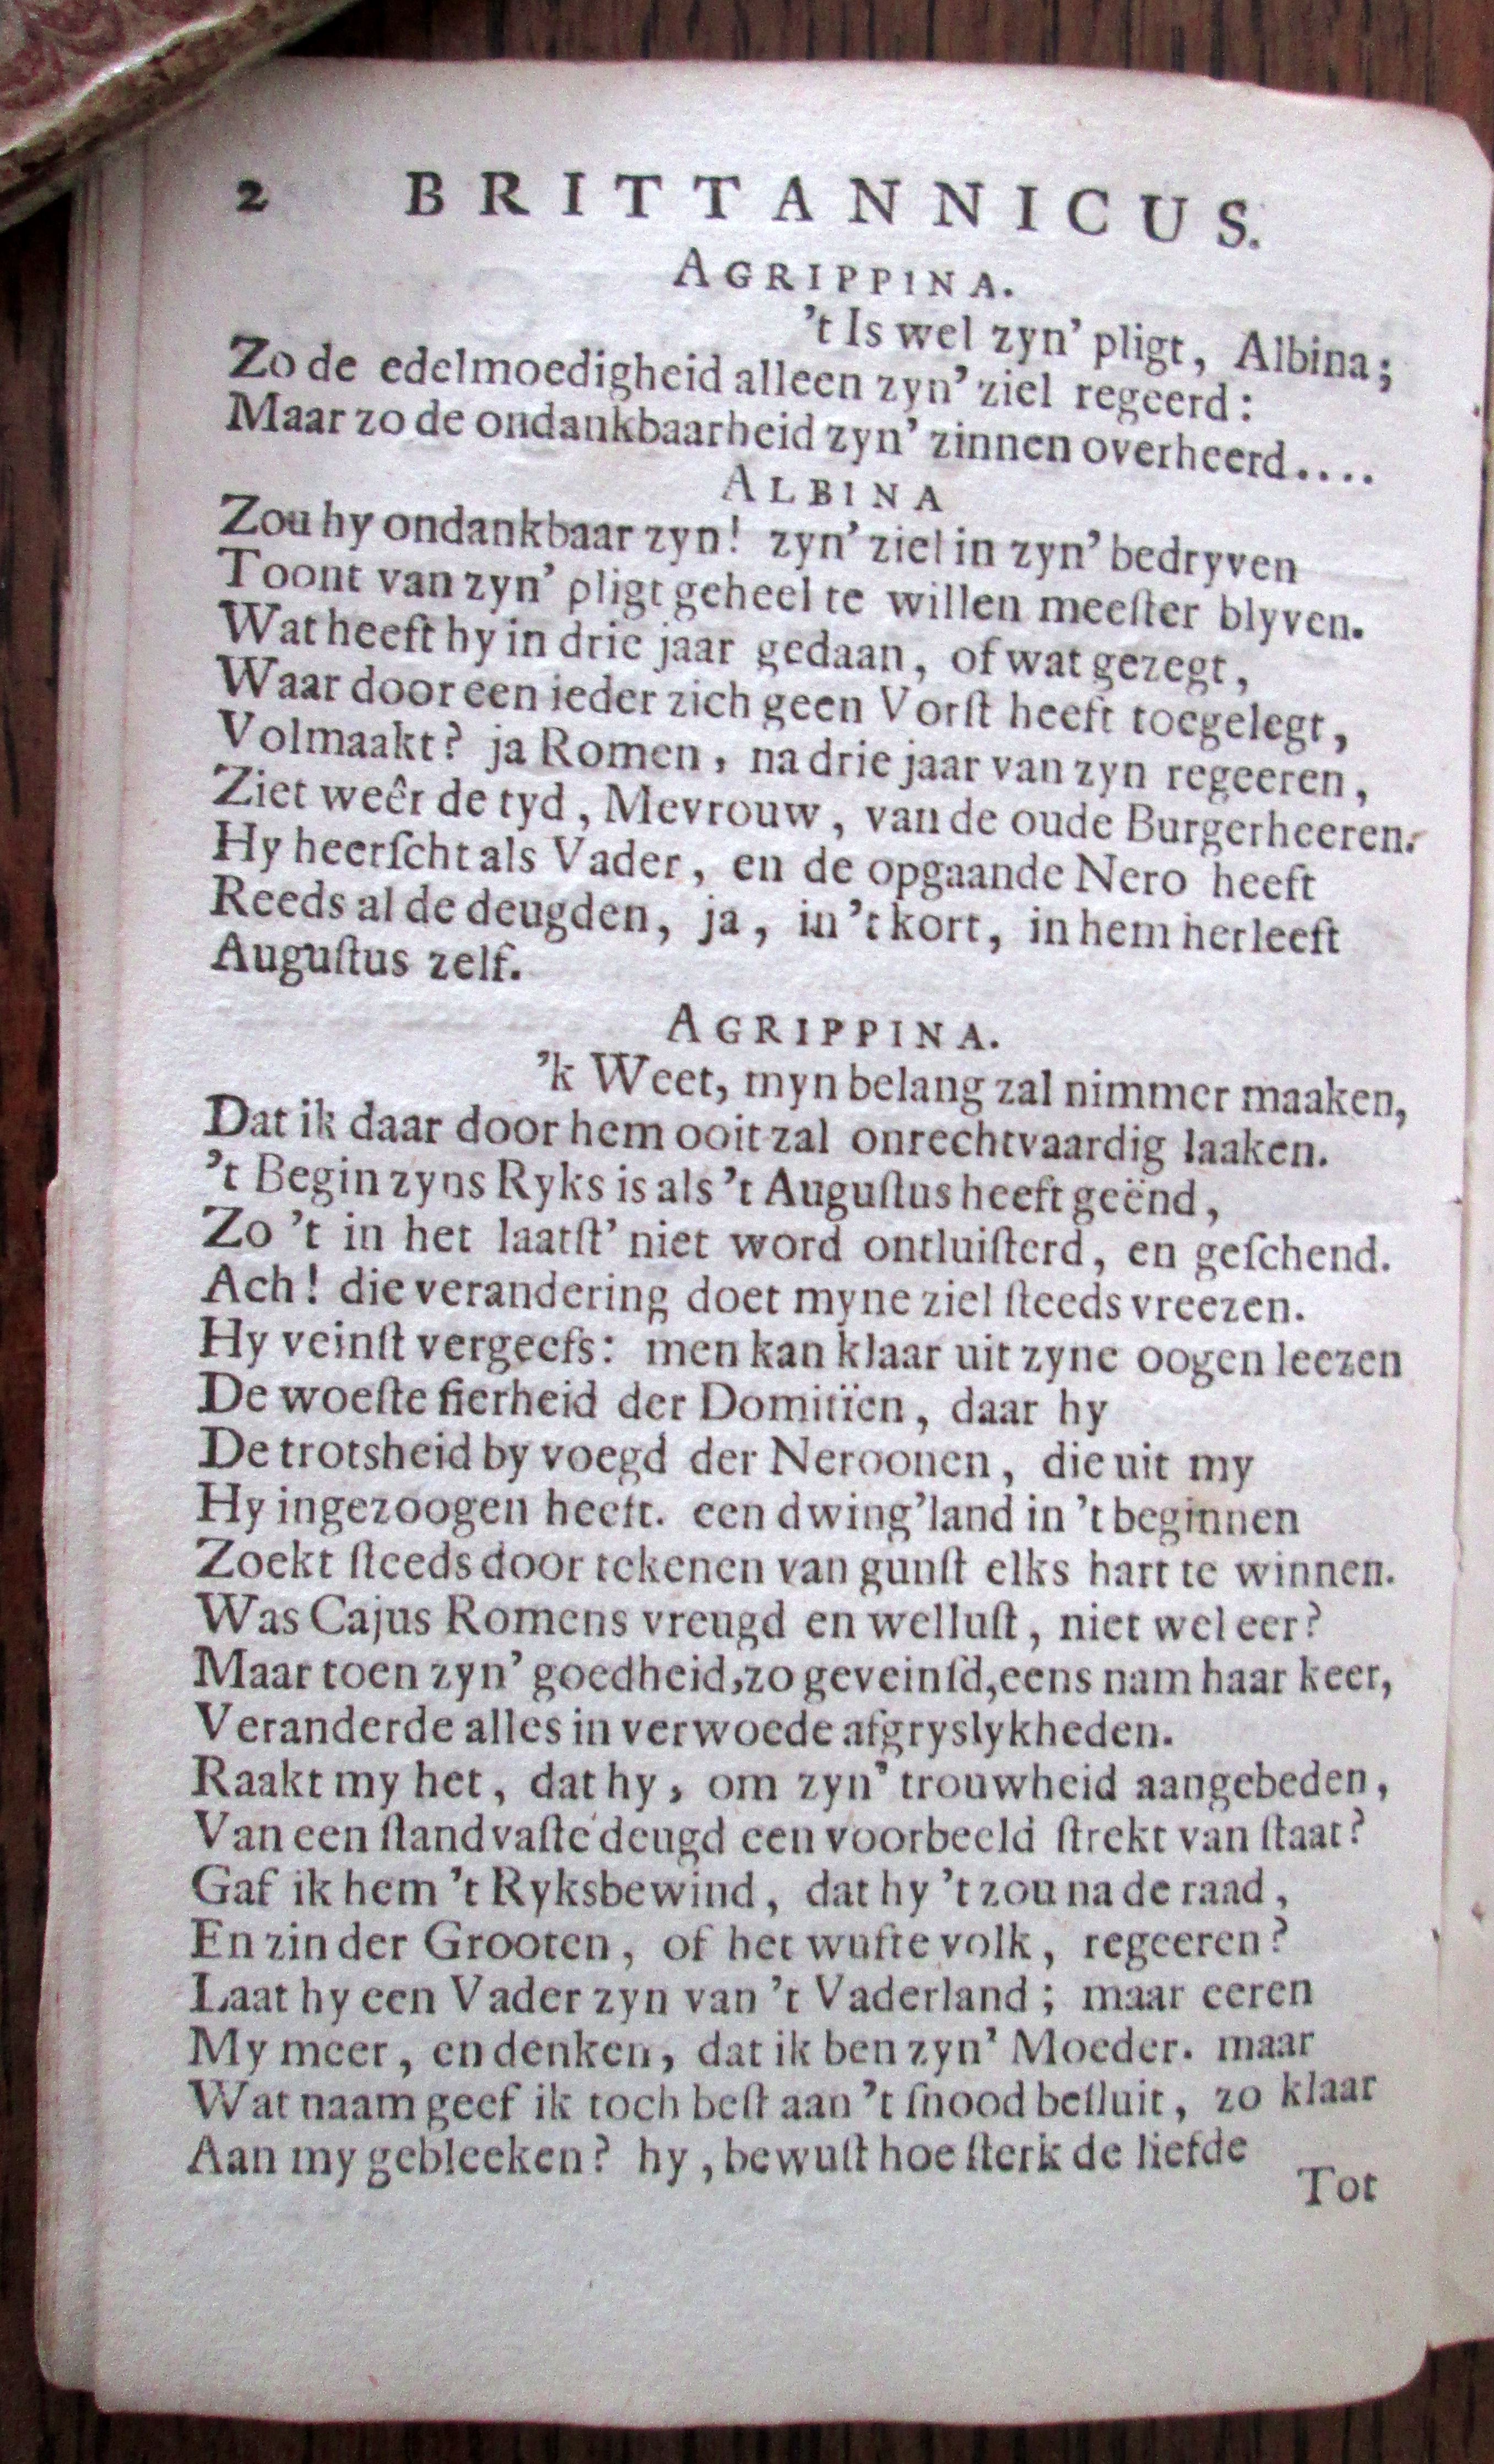 2 BRITTANNICUS.
AGRIPPINA.
't Is wel zyn' pligt, Albina;
Zo de edelmoedigheid alleen zyn' ziel regeerd:
Maar zo de ondankbaarheid zyn' zinnen overheerd....
ALBINA
Zou hy ondankbaar zyn! zyn' ziel in zyn' bedryven
Toont van zyn' pligt geheel te willen meeſter blyven.
Wat heeft hy in drie jaar gedaan, of wat gezegt,
Waar door een ieder zich geen Vorſt heeft toegelegt,
Volmaakt? ja Romen, na drie jaar van zyn regeeren,
Ziet weêr de tyd, Mevrouw, van de oude Burgerheeren.
Hy heerſcht als Vader, en de opgaande Nero heeft
Reeds al de deugden, ja, in 't kort, in hem herleeft
Auguſtus zelf.
AGRIPPINA.
'k Weet, myn belang zal nimmer maaken,
Dat ik daar door hem ooit zal onrechtvaardig laaken.
't Begin zyns Ryks is als 't Auguſtus heeft geënd,
Zo 't in het laatſt' niet word ontluiſterd, en geſchend.
Ach! die verandering doet myne ziel ſteeds vreezen.
Hy veinſt vergeefs: men kan klaar uit zyne oogen leezen
De woeſte fierheid der Domitïen, daar hy
De trotsheid by voegd der Neroonen, die uit my
Hy ingezoogen heeft. een dwing'land in 't beginnen
Zoekt ſteeds door tekenen van gunſt elks hart te winnen.
Was Cajus Romens vreugd en welluſt, niet wel eer?
Maar toen zyn' goedheid, zo geveinſd, eens nam haar keer,
Veranderde alles in verwoede afgryslykheden.
Raakt my het, dat hy, om zyn' trouwheid aangebeden,
Van een ſtandvaſte deugd een voorbeeld ſtrekt van ſtaat?
Gaf ik hem 't Ryksbewind, dat hy 't zou na de raad,
En zin der Grooten, of het wufte volk, regeeren?
Laat hy een Vader zyn van 't Vaderland; maar eeren
My meer, en denken, dat ik ben zyn' Moeder. maar
Wat naam geef ik toch beſt aan 't ſnood beſluit, zo klaar
Aan my gebleeken? hy, bewuſt hoe ſterk de liefde
Tot